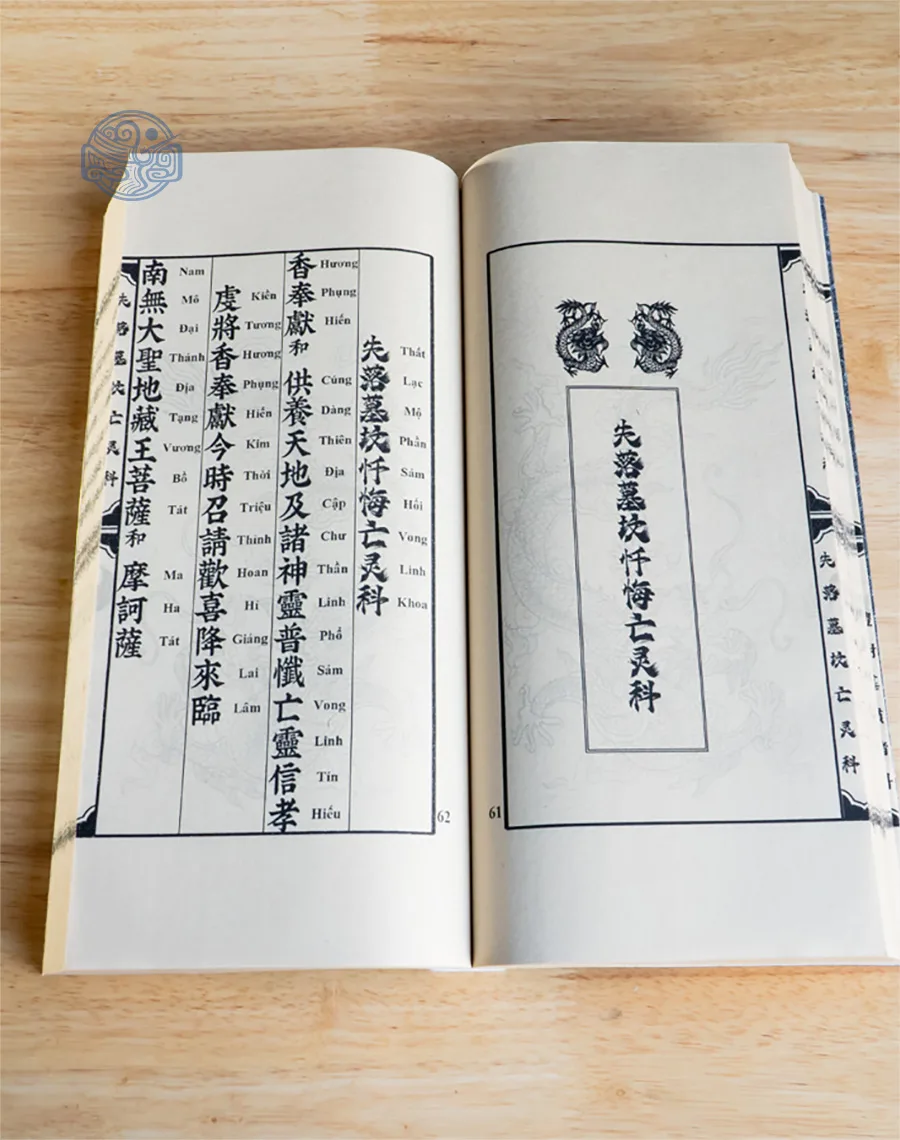 失落墓坟忏悔亡灵科
失落墓坟亡灵科
61
失落墓坟忏悔亡灵科
Thất Lạc Mộ Phần Sám Hối Vong Linh Khoa
香奉獻和供養天地及諸神靈普懺亡靈信孝
Hương Phụng Hiến Cúng Dàng Thiên Địa Cập Chư Thần Linh Phổ Sám Vong Linh Tín Hiếu
虔將香奉獻今時召請歡喜降來臨
Kiền Tương Hương Phụng Hiến Kim Thời Triệu Thỉnh Hoan Hỉ Giáng Lai Lâm
南無大聖地藏王菩薩和摩訶薩
Nam Mô Đại Thánh Địa Tạng Vương Bồ Tát Ma Ha Tát
失落墓坟亡灵科
62